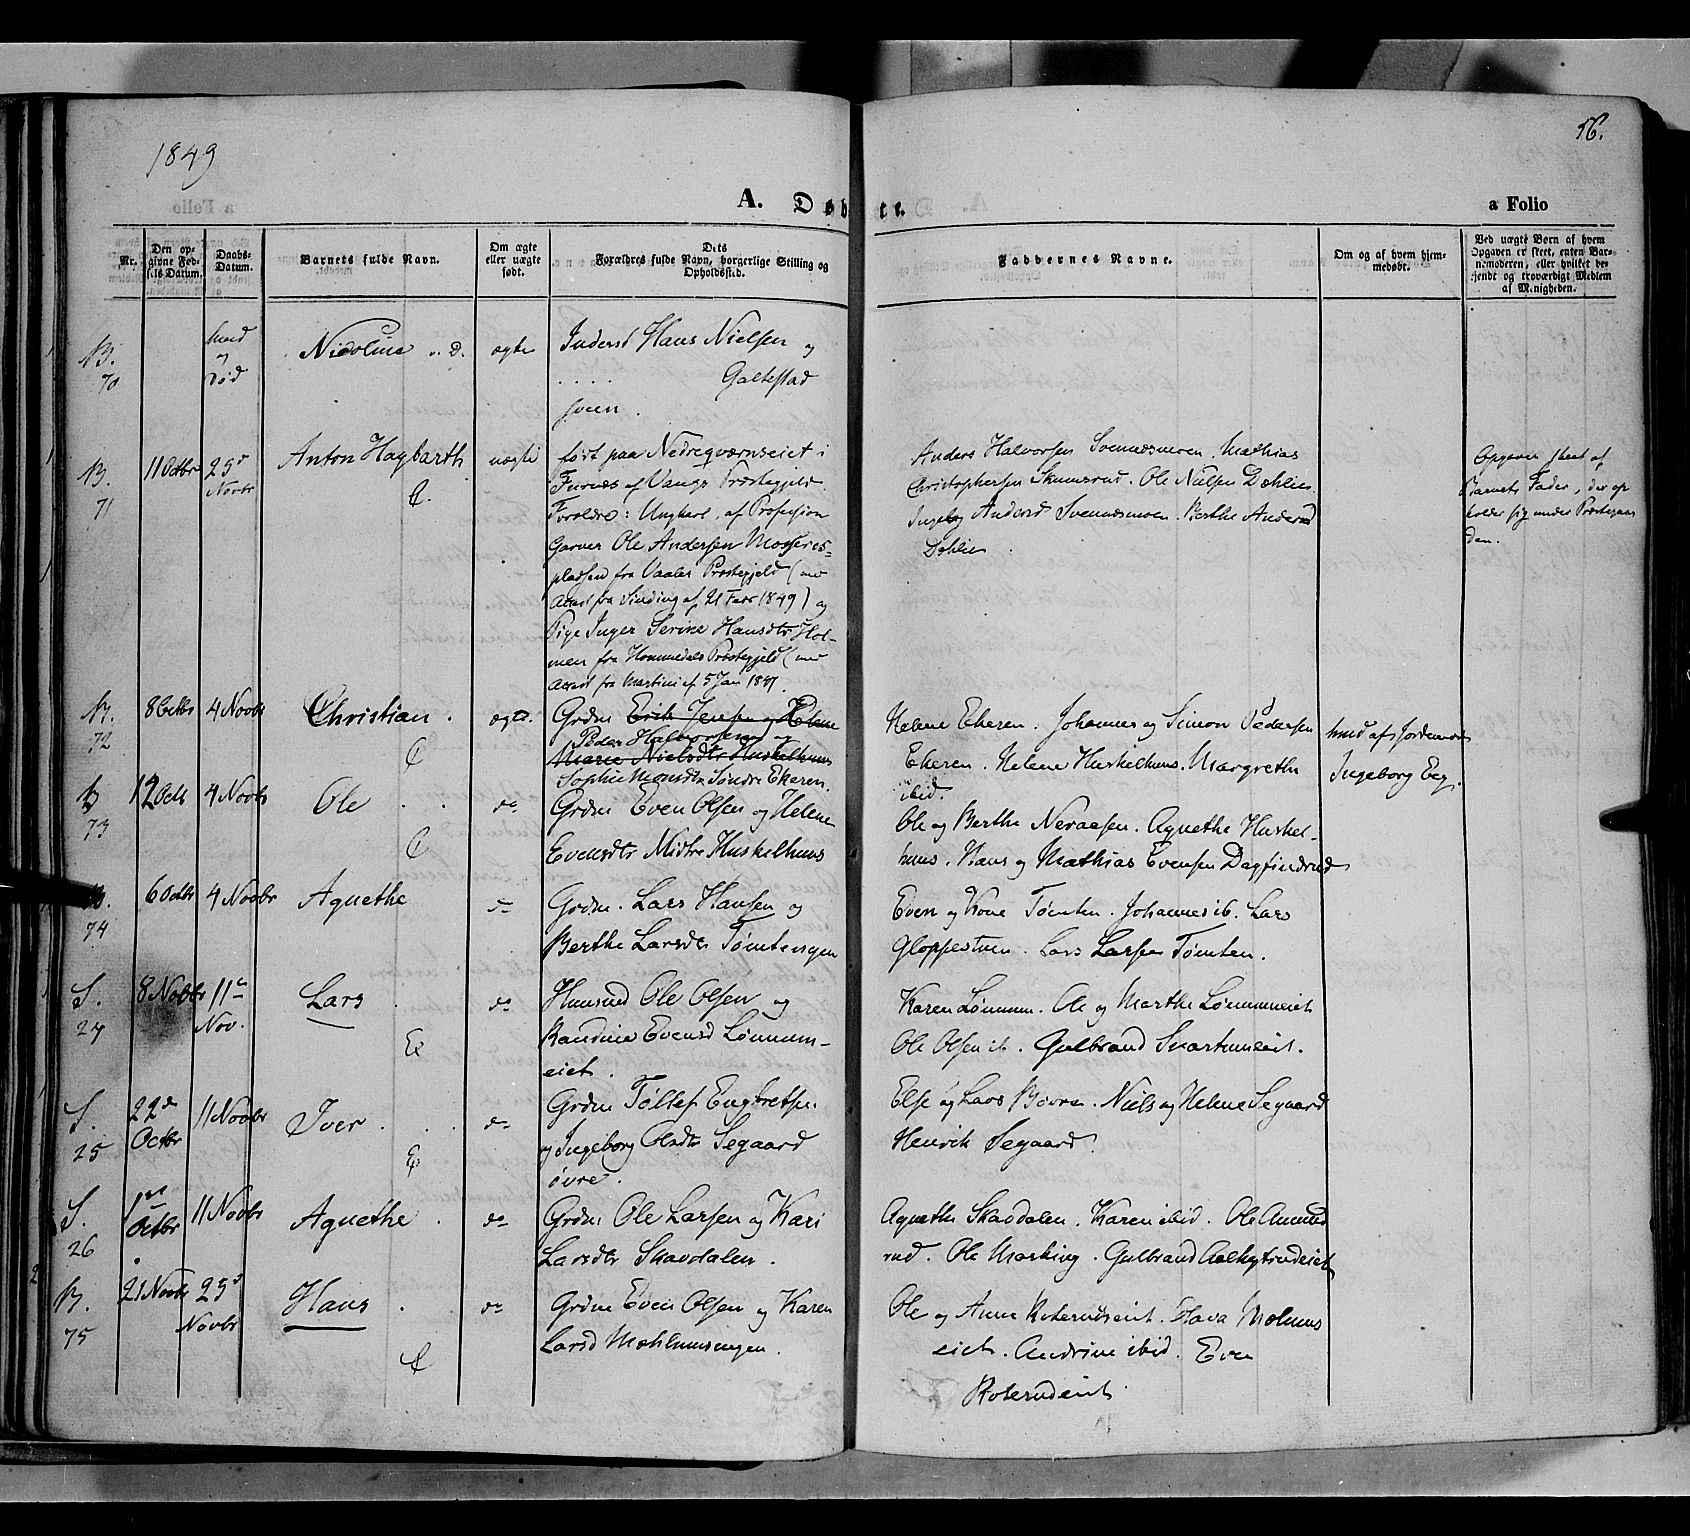 1849
56.
A. Døbte.
a Folio
Nr.
Den opgivne Fødsels Datum.
Daabs-Datum.
Barnets fulde Navn.
Om ægte eller uægte født.
Dets Forældres fulde Navn, borgerlige Stilling og Opholdssted.
Faddernes Navne.
Om og af hvem hjemmedøbt.
Ved uægte Børn af hvem Opgaven er skeet, enten Barnemoderen, eller hvilket bekjendt og troværdigt Medlem af Menigheden.
B. 70
død
Nicoline
ægte
Inderst Hans Nielsen og
. . . . Galtestad
sveen.
B. 71
11 Octbr
25d Novbr
Anton Hagbarth
uægte
født paa Nedreqværnseiet i
Furnes af Vangs Præstegjeld.
Forældre: Ungkarl, af Profession
Garver Ole Andersen Mosseres-
pladsen fra Vaaler Præstegjeld (
Attest fra Sinding af 21 Febr 1849) og
Pige Inger Serine Hansdtr Hol-
men fra Hommedals Præstegjeld (
Attest fra Martini af 5 Jan 1847.
Anders Halvorsen Svennesmoen. Mathias
Christophersen Skumsrud. Ole Nielsen Dæhlie.
Ingeborg Andersd Svennesmoen. Berthe Andersd
Dæhlie.
Opgaven skeet af
Barnets Fader, der op
holder sig under Præstegaar
den.
B. 72
8 Octbr
4 Novbr
Christian.
ægte.
Grdm Erik Jensen og Helene
Peder Halvorsen og
Marie Nielsdtr Huskelhuus
Sophie Monsdtr Søndre Ekeren.
Helene Ekeren. Johannes og Simon Pedersen
Ekeren. Helene Huskelhuus. Margrethe
ibid.
hmd af Jordemod
Ingeborg Eeg.
B. 73
12 Octb
4 Novbr
Ole
do
Grdm Even Olsen og Helene
Evensdtr Midtre Huskelhuus
Ole og Berthe Neraasen. Agnethe Huskel-
huus. Hans og Mathias Evensen Dagfindrud
B. 74
6 Octbr
4 Novbr
Agnethe
do
Grdm. Lars Hansen og
Berthe Larsdtr Tømtengen
Even og Kone Tømten. Johannes ib. Lars
Gloppestuen. Lars Larsen Tømten.
S. 24
8 Novbr
11te Nov.
Lars
do
Huusmd Ole Olsen og
Randine Evensd Lønnum-
eiet.
Karen Lønnum. Ole og Marthe Lønnumeiet
Ole Olsen ib. Gulbrand Svartumeiet.
S. 25
22d Octbr
11 Novbr
Iver.
do
Grdm Tollef Engbretsen
og Ingeborg Olsdtr Segaard
øvre.
Else og Lars Børre. Niels og Helene Segaard
Henrik Segaard.
S. 26
1ste Octbr
11 Novbr
Agnethe.
do
Grdm Ole Larsen og Kari
Larsdtr Skavdalen.
Agnethe Skavdalen. Karen ibid. Ole Amund
rud. Ole Marking. Gulbrand
B. 75
21 Novbr
25d Novbr
Hans
do
Grdm Even Olsen og Karen
Larsd Mæhlumsengen.
Ole og Anne Roterudeiet. Olava Mælums
eiet. Andrine ibid. Even
Roterudeiet.